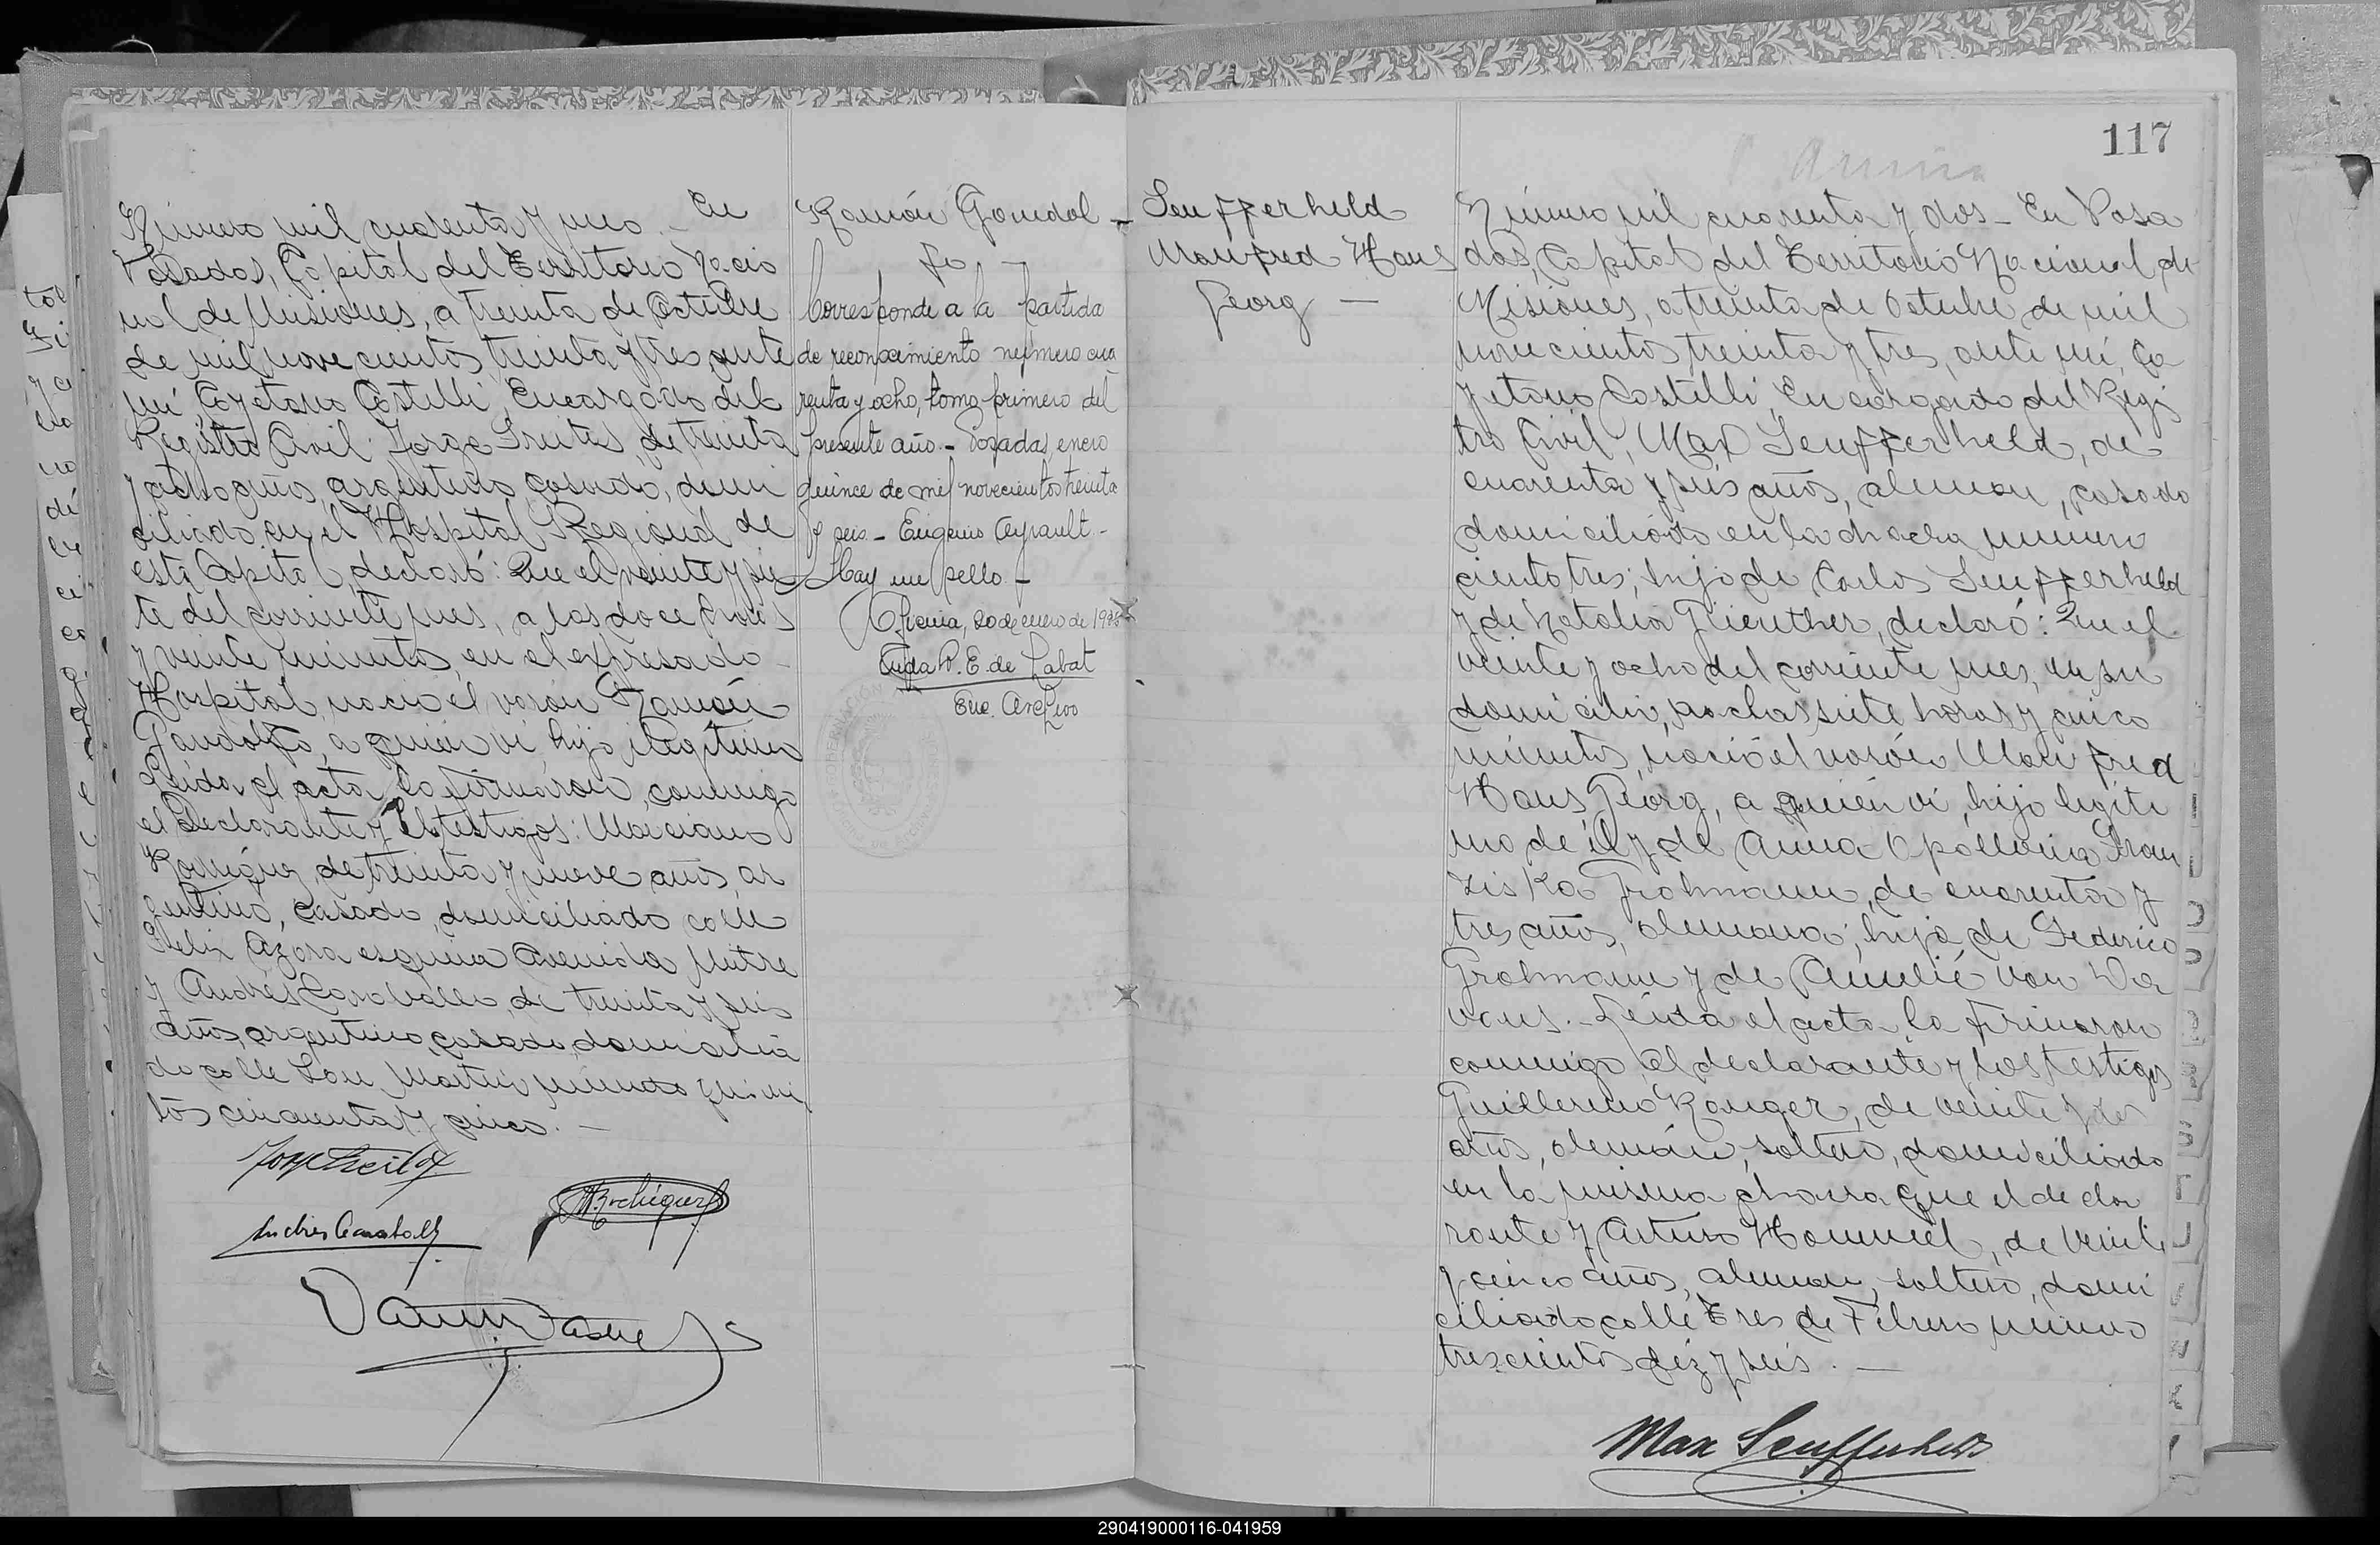 Número mil cuarenta y uno.- En
Posadas, Capital del Territorio Nacio
nal de Misiones, a treinta de Octubre
de mil novecientos treinta y tres, ante
mí, Cayetano Castelli, Encargado del
Registro Civil, Jorge Freites, de treinta
y ocho años, argentino, casado, domi
ciliado en el Hospital Regional de
esta Capital, declaró: Que el veinte y sie
te del corriente mes, a las doce horas
y veinte minutos, en el expresado
Hospital, nació el varón Ramón
Gandolfo, a quien vi, hijo ilegítimo
Leída el acta, la firmaron, conmigo
el Declarante y los testigos: Marciano
Rodríguez, de treinta y nueve años, ar
gentino, casado, domiciliado calle
Felix Azara esquina Avenida Mitre
y Andrés Caraballo, de treinta y seis
años, argentino, casado, domicilia
do calle San Martín número quinien
tos cincuenta y cinco. -
Ramón Gandol-
fo -
Corresponde a la partida
de reconocimiento número cua
renta y ocho, tomo primero del
presente año.- Posadas, enero
quince de mil novecientos treinta
y seis - Eugenio Ayrault -
Hay un sello -
20 de enero de 1936
E. de Labat
Enc. Archivo
117
Seufferheld
Manfred Hans
Georg -
Número mil cuarenta y dos - En Posa
das, Capital del Territorio Nacional de
Misiones, a treinta de Octubre de mil
novecientos treinta y tres, ante mí, Ca
yetano Castelli, Encargado del Regis
tro Civil, Max Seufferheld, de
cuarenta y seis años, aleman, casado
domiciliado en la chacra número
ciento tres; hijo de Carlos Seufferheld
y de Natalia Guenther, declaró: Que el
veinte y ocho del corriente mes, en su
domicilio, a las siete horas y cinco
minutos, nació el varón Manfred
Hans Georg, a quien vi, hijo legíti
mo de él y de Anna Apollonia Fran
ziska Grohmann, de cuarenta y
tres años, alemana; hija de Federico
Grohmann y de Amelie von
Leída el acta, la firmaron
conmigo, el declarante y los testigos
Guillermo Ranger, de veinte y dos
años, alemán, soltero, domiciliado
en la misma chacra que el decla
rante y Arturo Hommel, de veinte
y cinco años, aleman, soltero, domi
ciliado calle Tres de Febrero número
trescientos diez y seis. -
Max Seufferheld
290419000116-041959